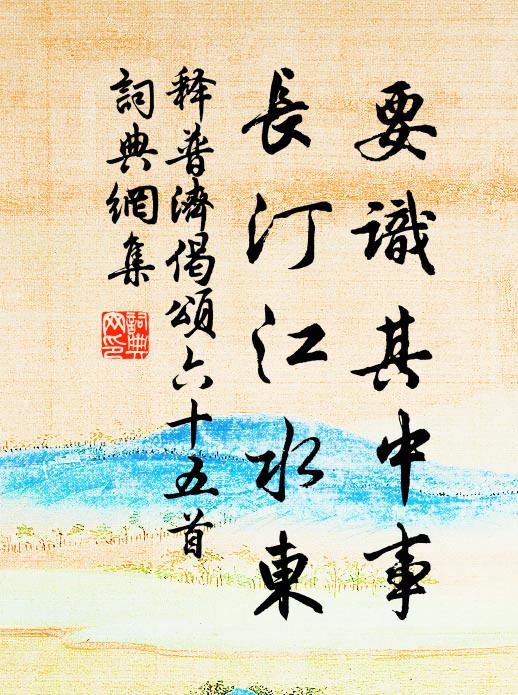 要識其中事
長汀江水東
释普濟偈頌六十五首
詞典網集
詞典網印